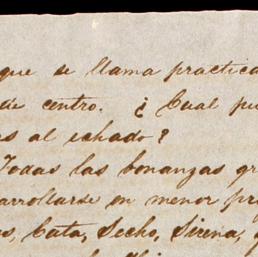 que se llama practica
de centro. ¿Cual pu
s al echado?
Todas las bonanzas gr
arrollarse en menor pr
s, Cata, Secho, Sirena, y